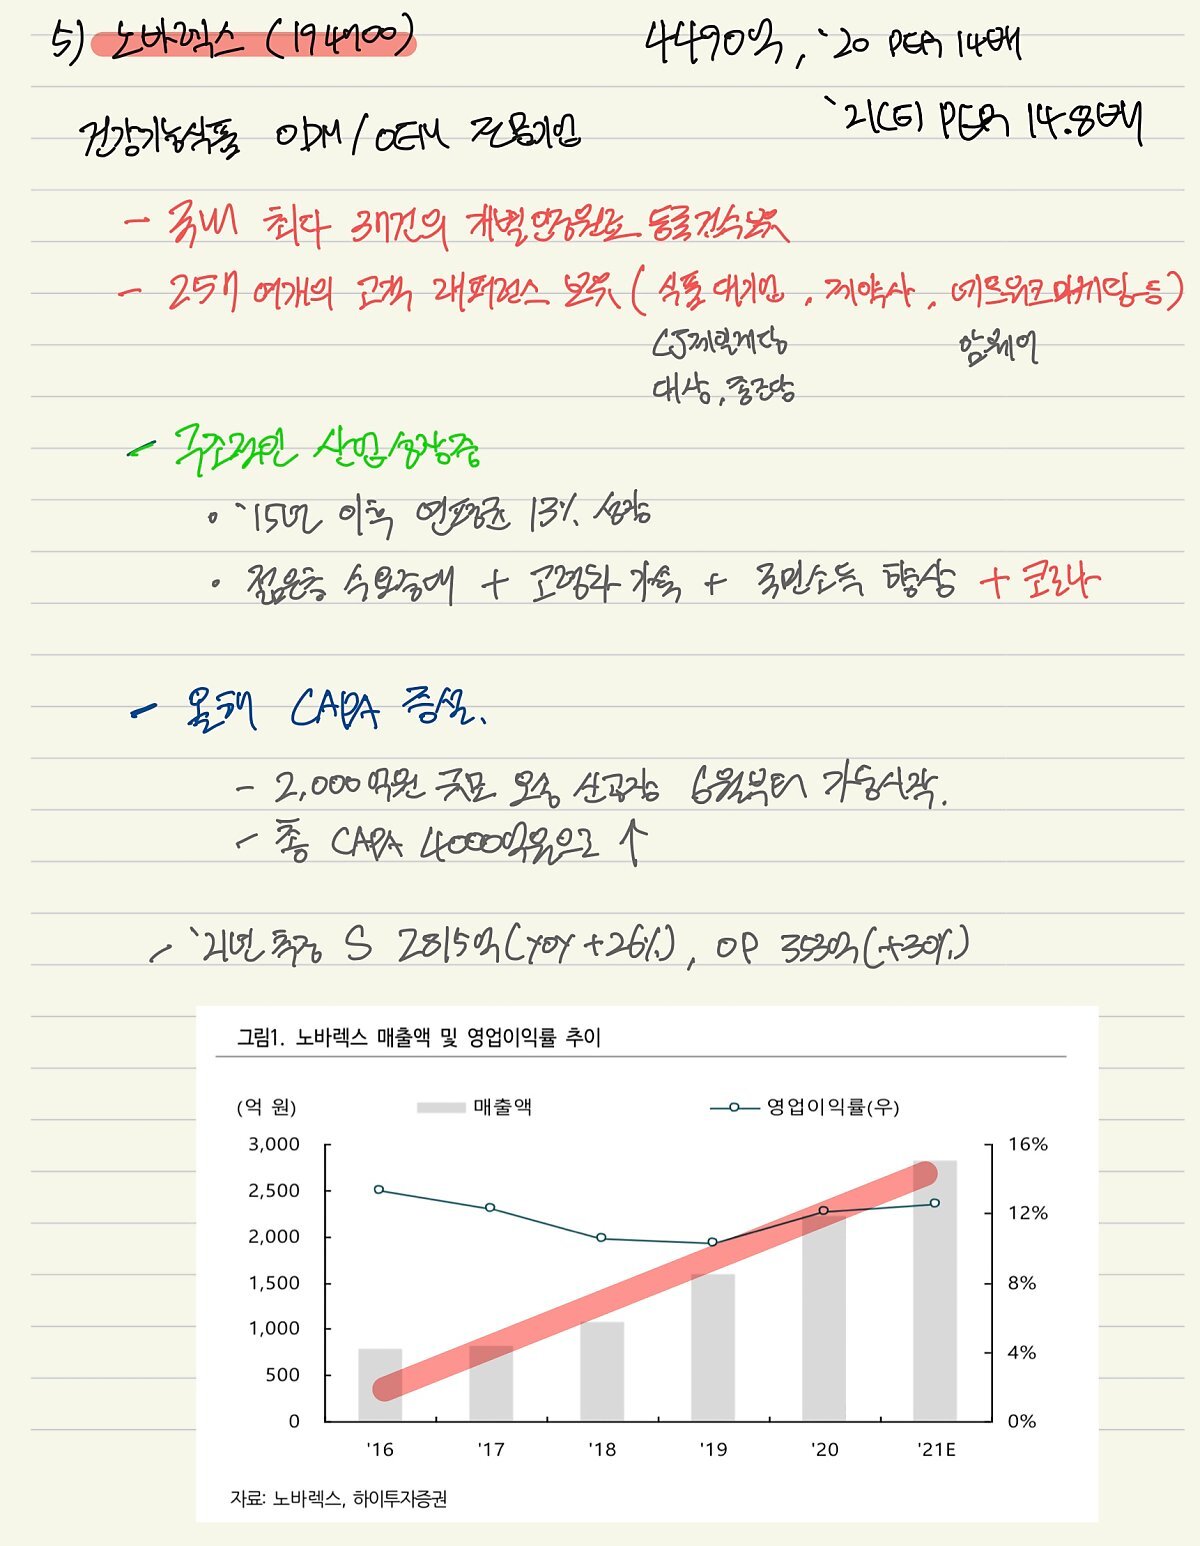 5) 노바렉스 (194700)
4490억, `20 PER 14배
`21(E) PER 14.8배
건강기능식품 ODM/OEM 전문기업
- 국내 최다 37건의 개별인정원료 등록건수 보유
- 257 여개의 고객 래퍼런스 보유 (식품 대기업, 제약사, 네트워크마케팅 등)
CJ제일제당 암웨이
대상, 종근당
- 구조적인 산업성장중
• `15년 이후 연평균 13% 성장
• 젊은층 수요증대 + 고령화 가속 + 국민소득 향상 + 코로나
- 올해 CAPA 증설.
- 2,000억원 규모 오송 신공장 6월부터 가동시작.
- 총 CAPA 4000억원으로 ↑
- `21년 추정 S 2815억(YoY +26%), OP 353억(+30%)
그림1. 노바렉스 매출액 및 영업이익률 추이
(억 원) 매출액 영업이익률(우)
3,000 16%
2,500
12%
2,000
1,500 8%
1,000
4%
500
0 0%
'16 '17 '18 '19 '20 '21E
자료: 노바렉스, 하이투자증권